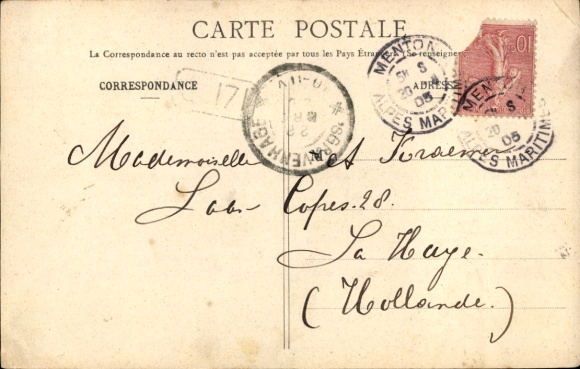 CARTE POSTALE
La Correspondance au recto n'est pas acceptée par tous les Pays Étrangers (Se renseigner
CORRESPONDANCE
ADRESSE
MENTON
5E S
20
05
ALPES MARITIMES
MENTON
S
20
05
ALPES MARITIMES
10
17
'SGRAVENHAGE
Mademoiselle A Kraemer
Laan Copes. 28.
La Haye.
(Hollande.)